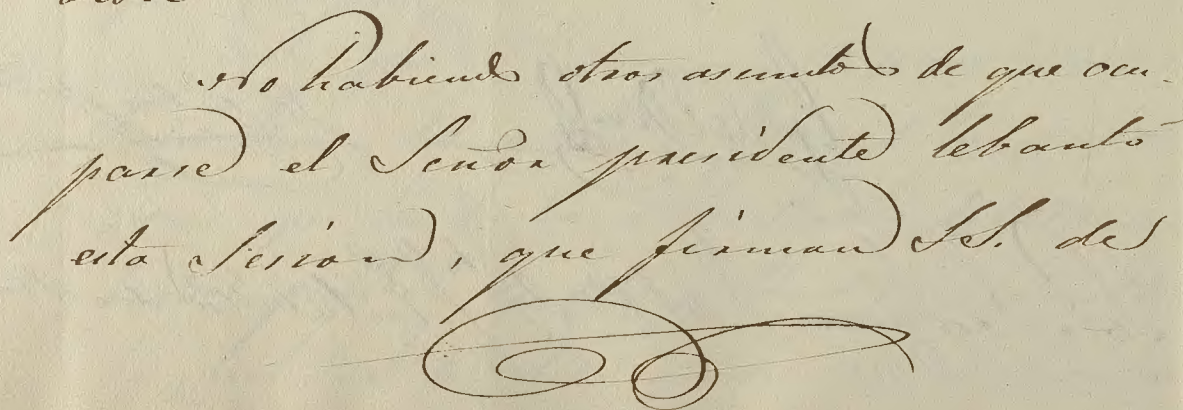 No habiendo otros asuntos de que ocu-
parse el Señor presidente lebantó
esta Sesion, que firman SS. de